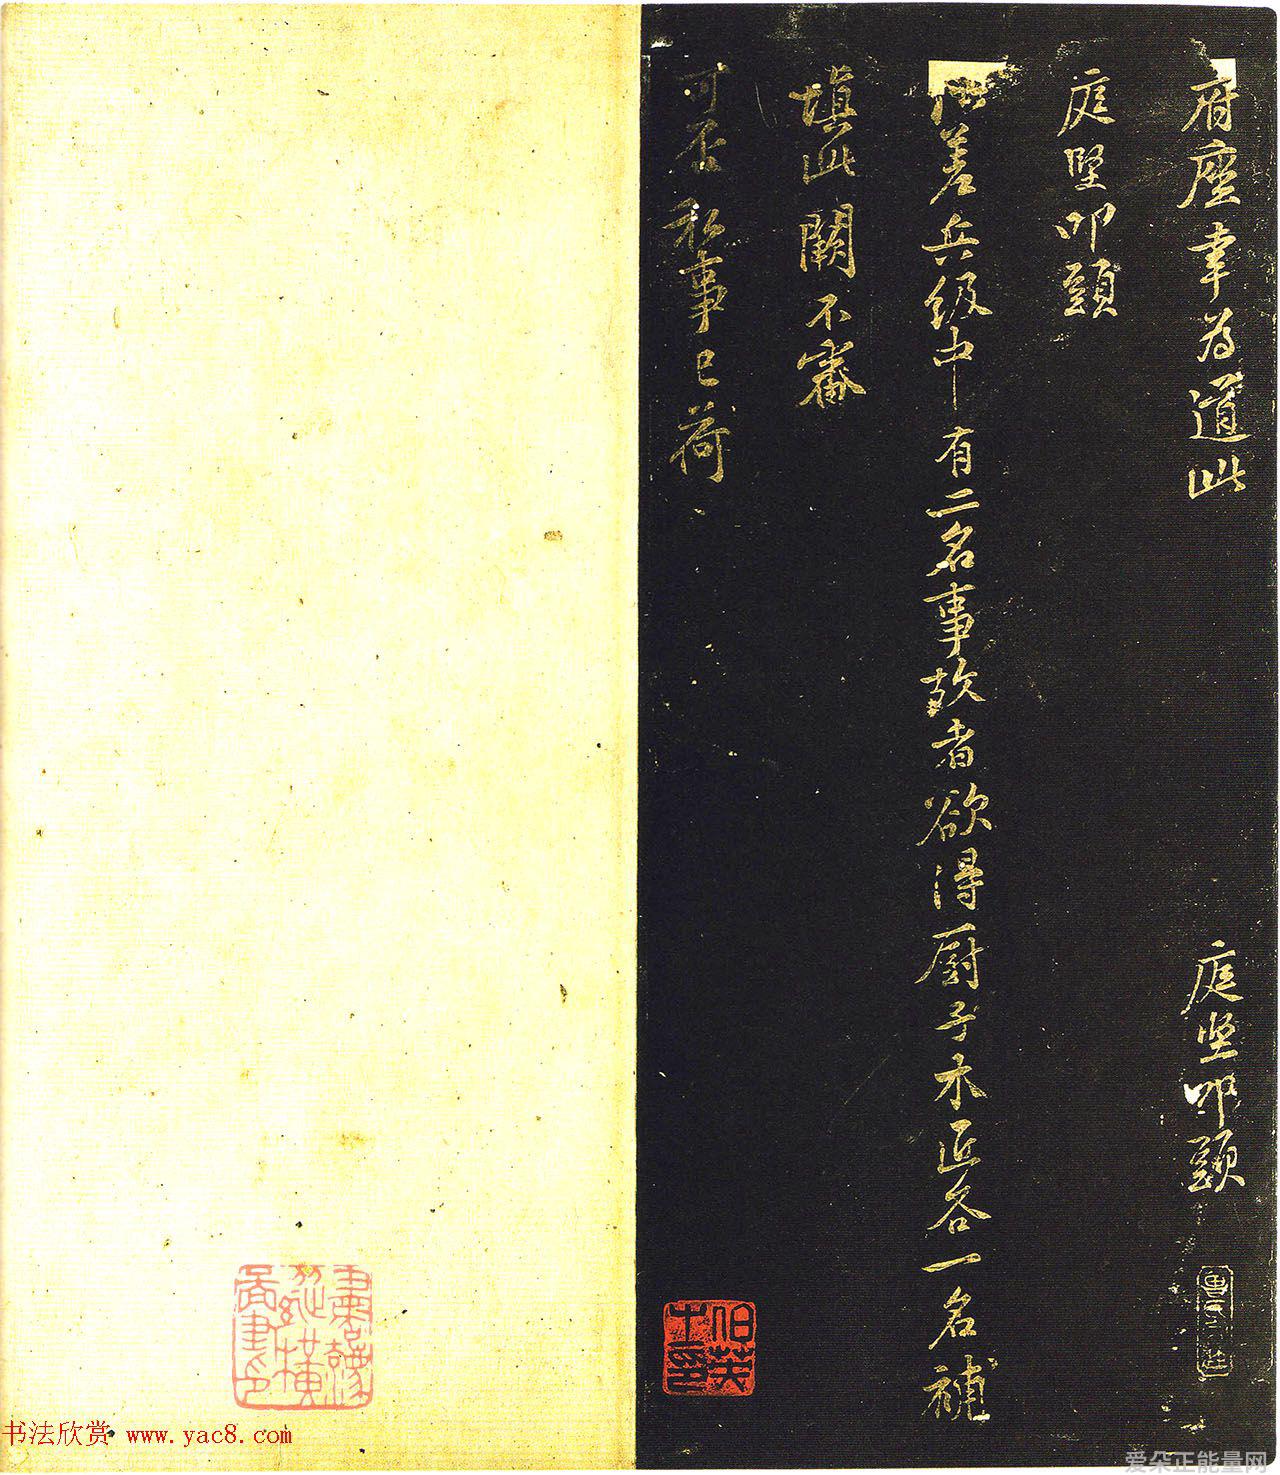 府座幸为道此 庭坚叩頭
庭坚叩頭
差兵级中有二名事故者欲得厨子木匠各一名補
填此闕不審
可否私事已荷
伯英
士印
书法欣赏 www.yac8.com
爱朵正能量网